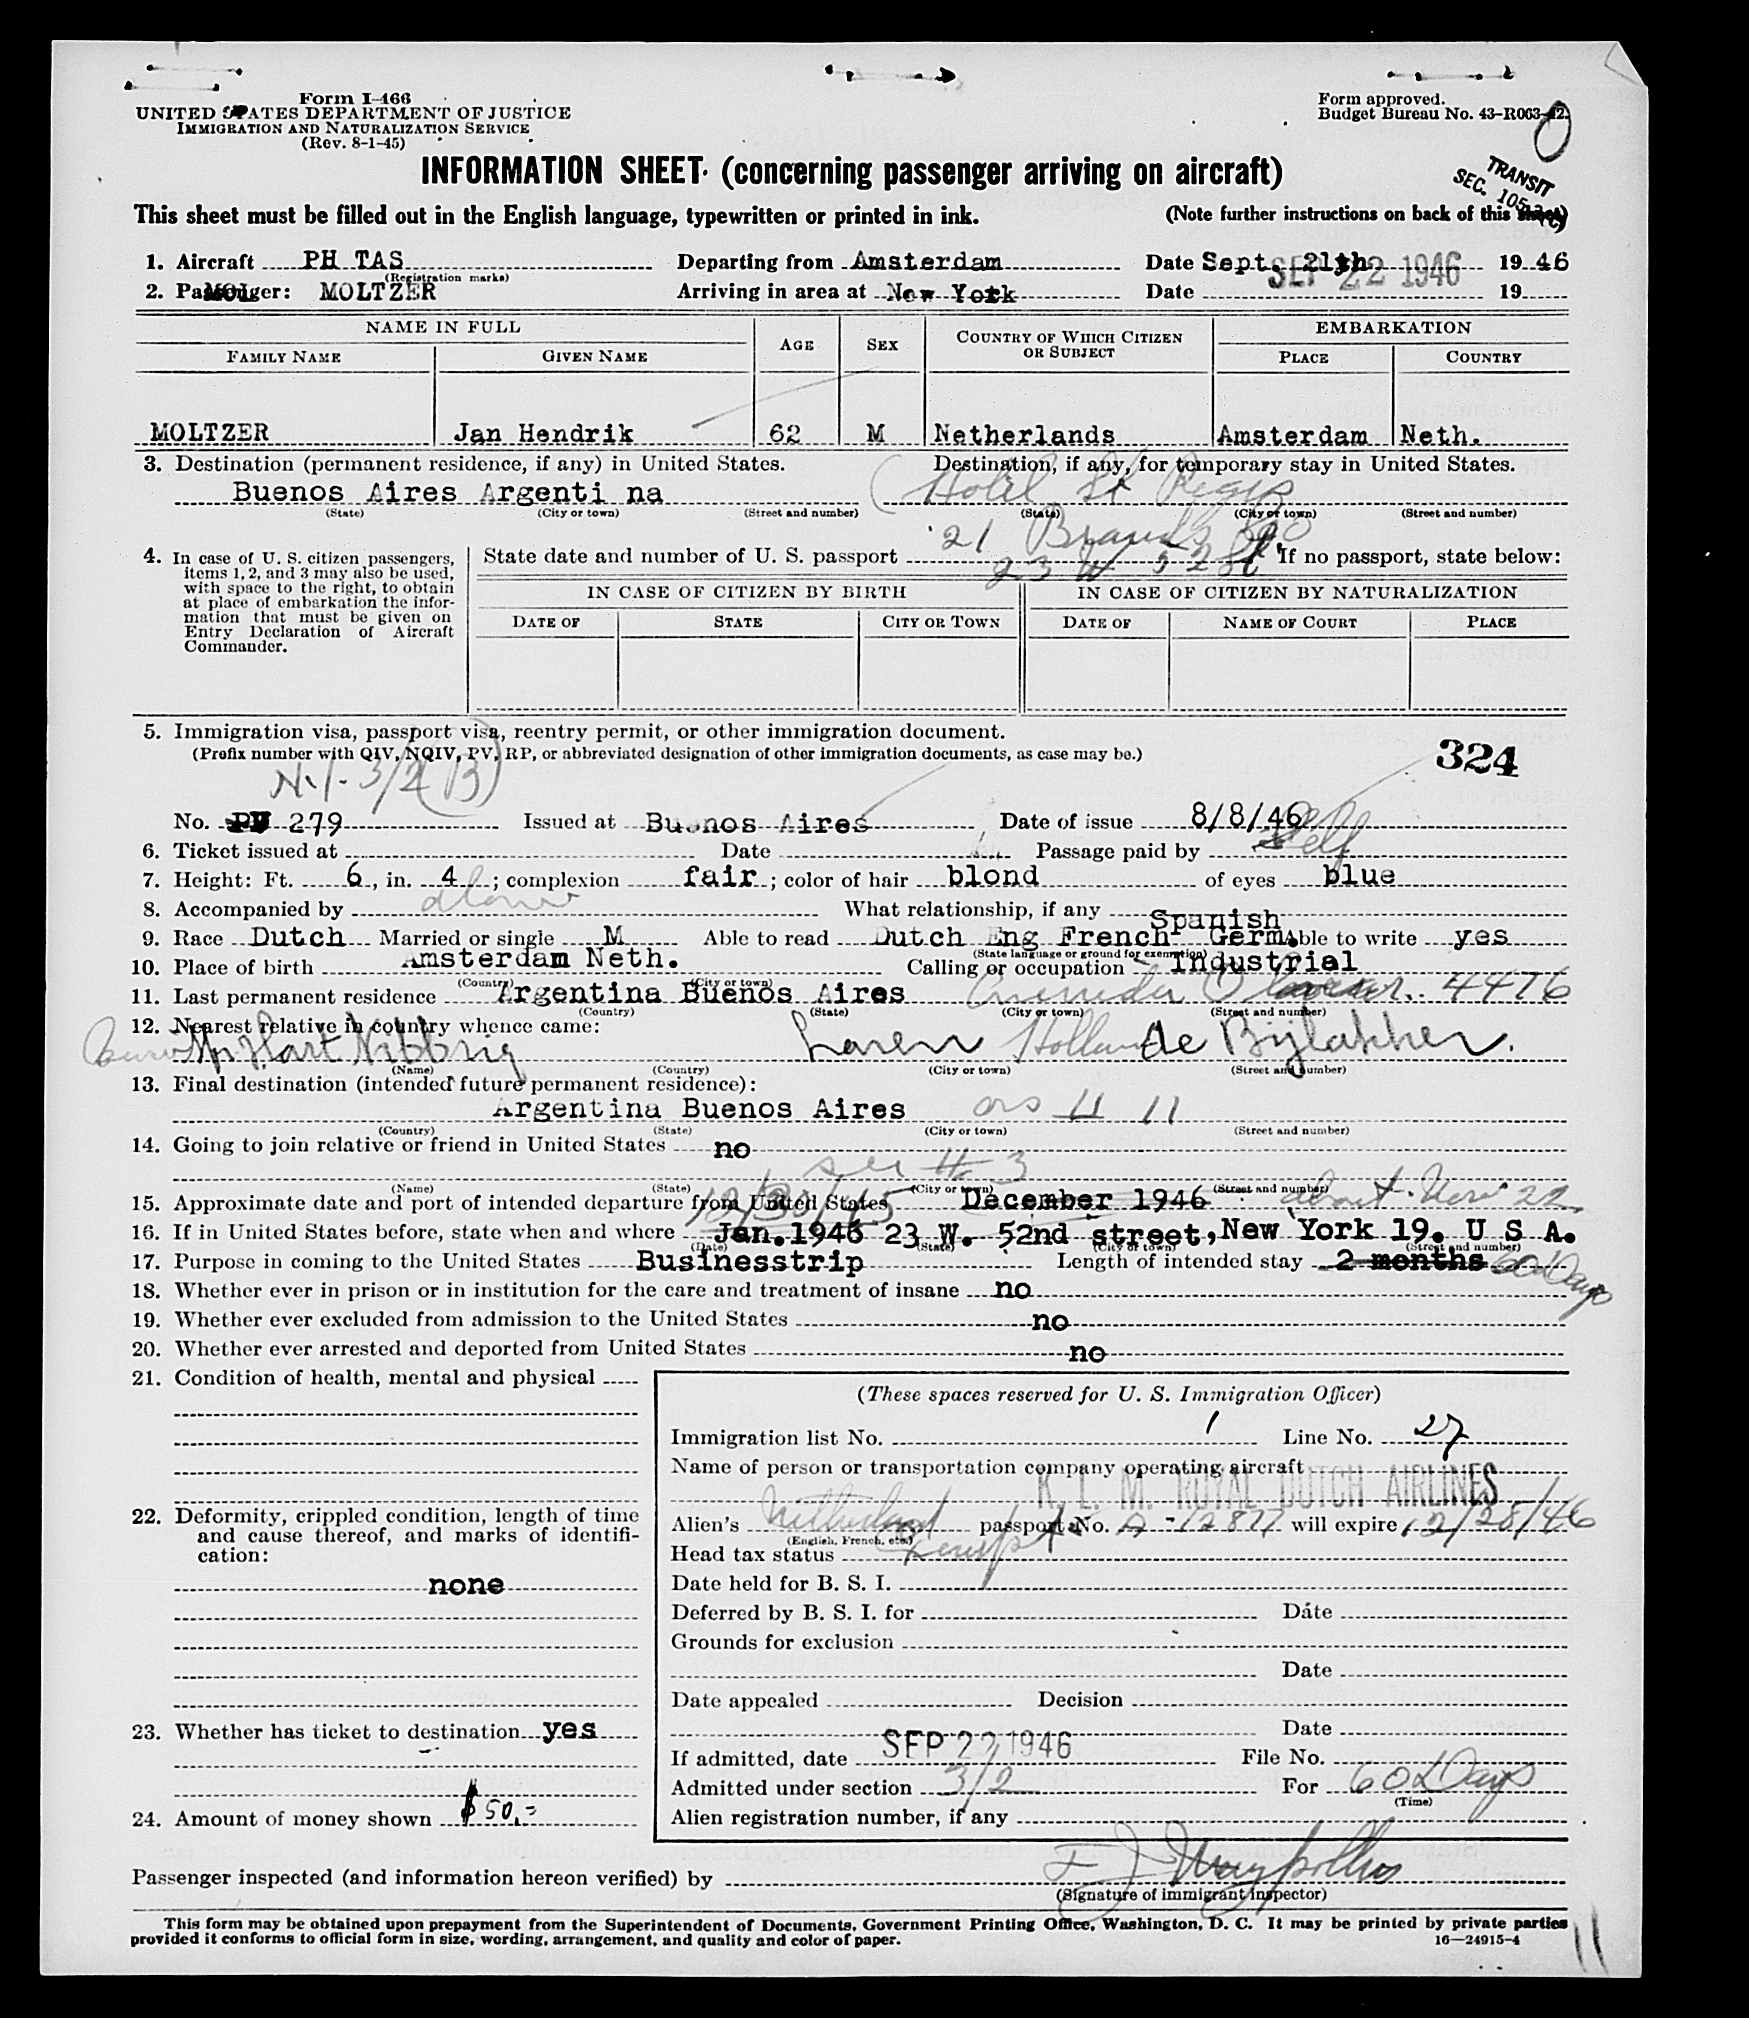 Form I-466
UNITED STATES DEPARTMENT OF JUSTICE
IMMIGRATION AND NATURALIZATION SERVICE
(Rev. 8-1-45)
Form approved.
Budget Bureau No. 43-R063-42.
INFORMATION SHEET (concerning passenger arriving on aircraft)
TRANSIT
SEC. 105
This sheet must be filled out in the English language, typewritten or printed in ink. (Note further instructions on back of this sheet)
1. Aircraft PH TAS Departing from Amsterdam Date Sept. 21th 1946
(Registration marks)
SEP 22 1946
2. Passenger: MOLTZER Arriving in area at New York Date 19
NAME IN FULL AGE SEX COUNTRY OF WHICH CITIZEN OR SUBJECT EMBARKATION
FAMILY NAME GIVEN NAME PLACE COUNTRY
MOLTZER Jan Hendrik 62 M Netherlands Amsterdam Neth.
3. Destination (permanent residence, if any) in United States. Destination, if any, for temporary stay in United States.
Buenos Aires Argenti na Hotel St Regis
(State) (City or town) (Street and number) (State) (City or town) (Street and number)
21 Brands
23 W 52 St
4. In case of U. S. citizen passengers, items 1, 2, and 3 may also be used, with space to the right, to obtain at place of embarkation the information that must be given on Entry Declaration of Aircraft Commander.
State date and number of U. S. passport If no passport, state below:
IN CASE OF CITIZEN BY BIRTH IN CASE OF CITIZEN BY NATURALIZATION
DATE OF STATE CITY OR TOWN DATE OF NAME OF COURT PLACE
5. Immigration visa, passport visa, reentry permit, or other immigration document.
(Prefix number with QIV, NQIV, PV, RP, or abbreviated designation of other immigration documents, as case may be.)
324
3/2 (B)
No. PV 279 Issued at Buenos Aires Date of issue 8/8/46
6. Ticket issued at Date Passage paid by Self
7. Height: Ft. 6, in. 4; complexion fair; color of hair blond of eyes blue
8. Accompanied by alone What relationship, if any
9. Race Dutch Married or single M Able to read Dutch Eng French Spanish Germ. Able to write yes
(State language or ground for exemption)
10. Place of birth Amsterdam Neth. Calling or occupation Industrial
(Country) (City or town)
11. Last permanent residence Argentina Buenos Aires 4476
(Country) (State) (City or town) (Street and number)
12. Nearest relative in country whence came:
Hart Nibbrig Laren Holland de Bijlakker.
(Name) (Country) (City or town) (Street and number)
13. Final destination (intended future permanent residence):
Argentina Buenos Aires as # 11
(Country) (State) (City or town) (Street and number)
14. Going to join relative or friend in United States no
see # 3
(Name) (State) (City or town) (Street and number)
15. Approximate date and port of intended departure from United States December 1946 about Nov 22
12/30/45
16. If in United States before, state when and where Jan. 1946 23 W. 52nd street, New York 19. U S A.
(Date) (State) (City or town) (Street and number)
17. Purpose in coming to the United States Businesstrip Length of intended stay 2 months 60 Days
18. Whether ever in prison or in institution for the care and treatment of insane no
19. Whether ever excluded from admission to the United States no
20. Whether ever arrested and deported from United States no
21. Condition of health, mental and physical
22. Deformity, crippled condition, length of time and cause thereof, and marks of identification:
none
23. Whether has ticket to destination yes
24. Amount of money shown $ 50.-
(These spaces reserved for U. S. Immigration Officer)
Immigration list No. 1 Line No. 27
Name of person or transportation company operating aircraft
K. L. M. ROYAL DUTCH AIRLINES
Alien's Netherland passport No. A-12877 will expire 12/28/46
(English, French, etc.)
Head tax status Exempt
Date held for B. S. I.
Deferred by B. S. I. for Date
Grounds for exclusion
Date
Date appealed Decision
Date
If admitted, date SEP 22 1946 File No.
Admitted under section 3/2 For 60 Days
(Time)
Alien registration number, if any
Passenger inspected (and information hereon verified) by
(Signature of immigrant inspector)
This form may be obtained upon prepayment from the Superintendent of Documents, Government Printing Office, Washington, D. C. It may be printed by private parties
provided it conforms to official form in size, wording, arrangement, and quality and color of paper. 16—24915-4
11